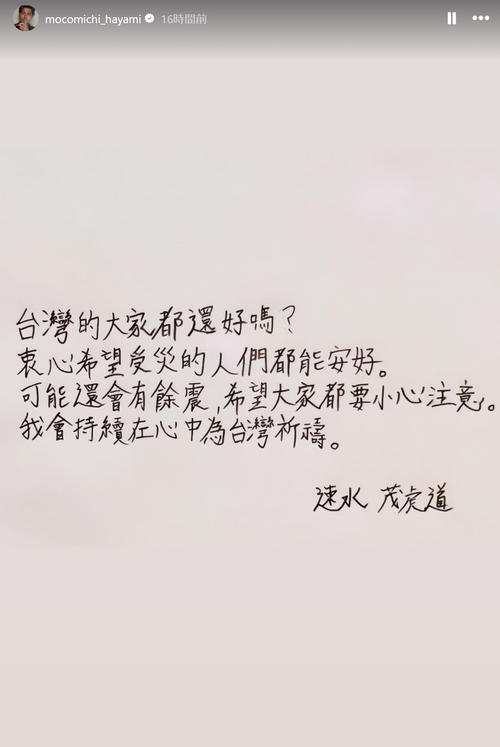 mocomichi_hayami 16時間前
台灣的大家都還好嗎？
衷心希望受災的人們都能安好。
可能還會有餘震,希望大家都要小心注意。
我會持續在心中為台灣祈禱。
速水 茂虎道